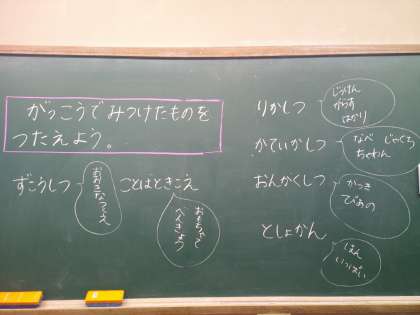 がっこうでみつけたものを
つたえよう。
ずこうしつ
おおきなつくえ
ことばときこえ
おもちゃで
べんきょう
りかしつ
じっけん
がらす
はかり
かていかしつ
なべ じゃぐち
ちゃわん
おんがくしつ
がっき
ぴあの
としょかん
ほん
いっぱい